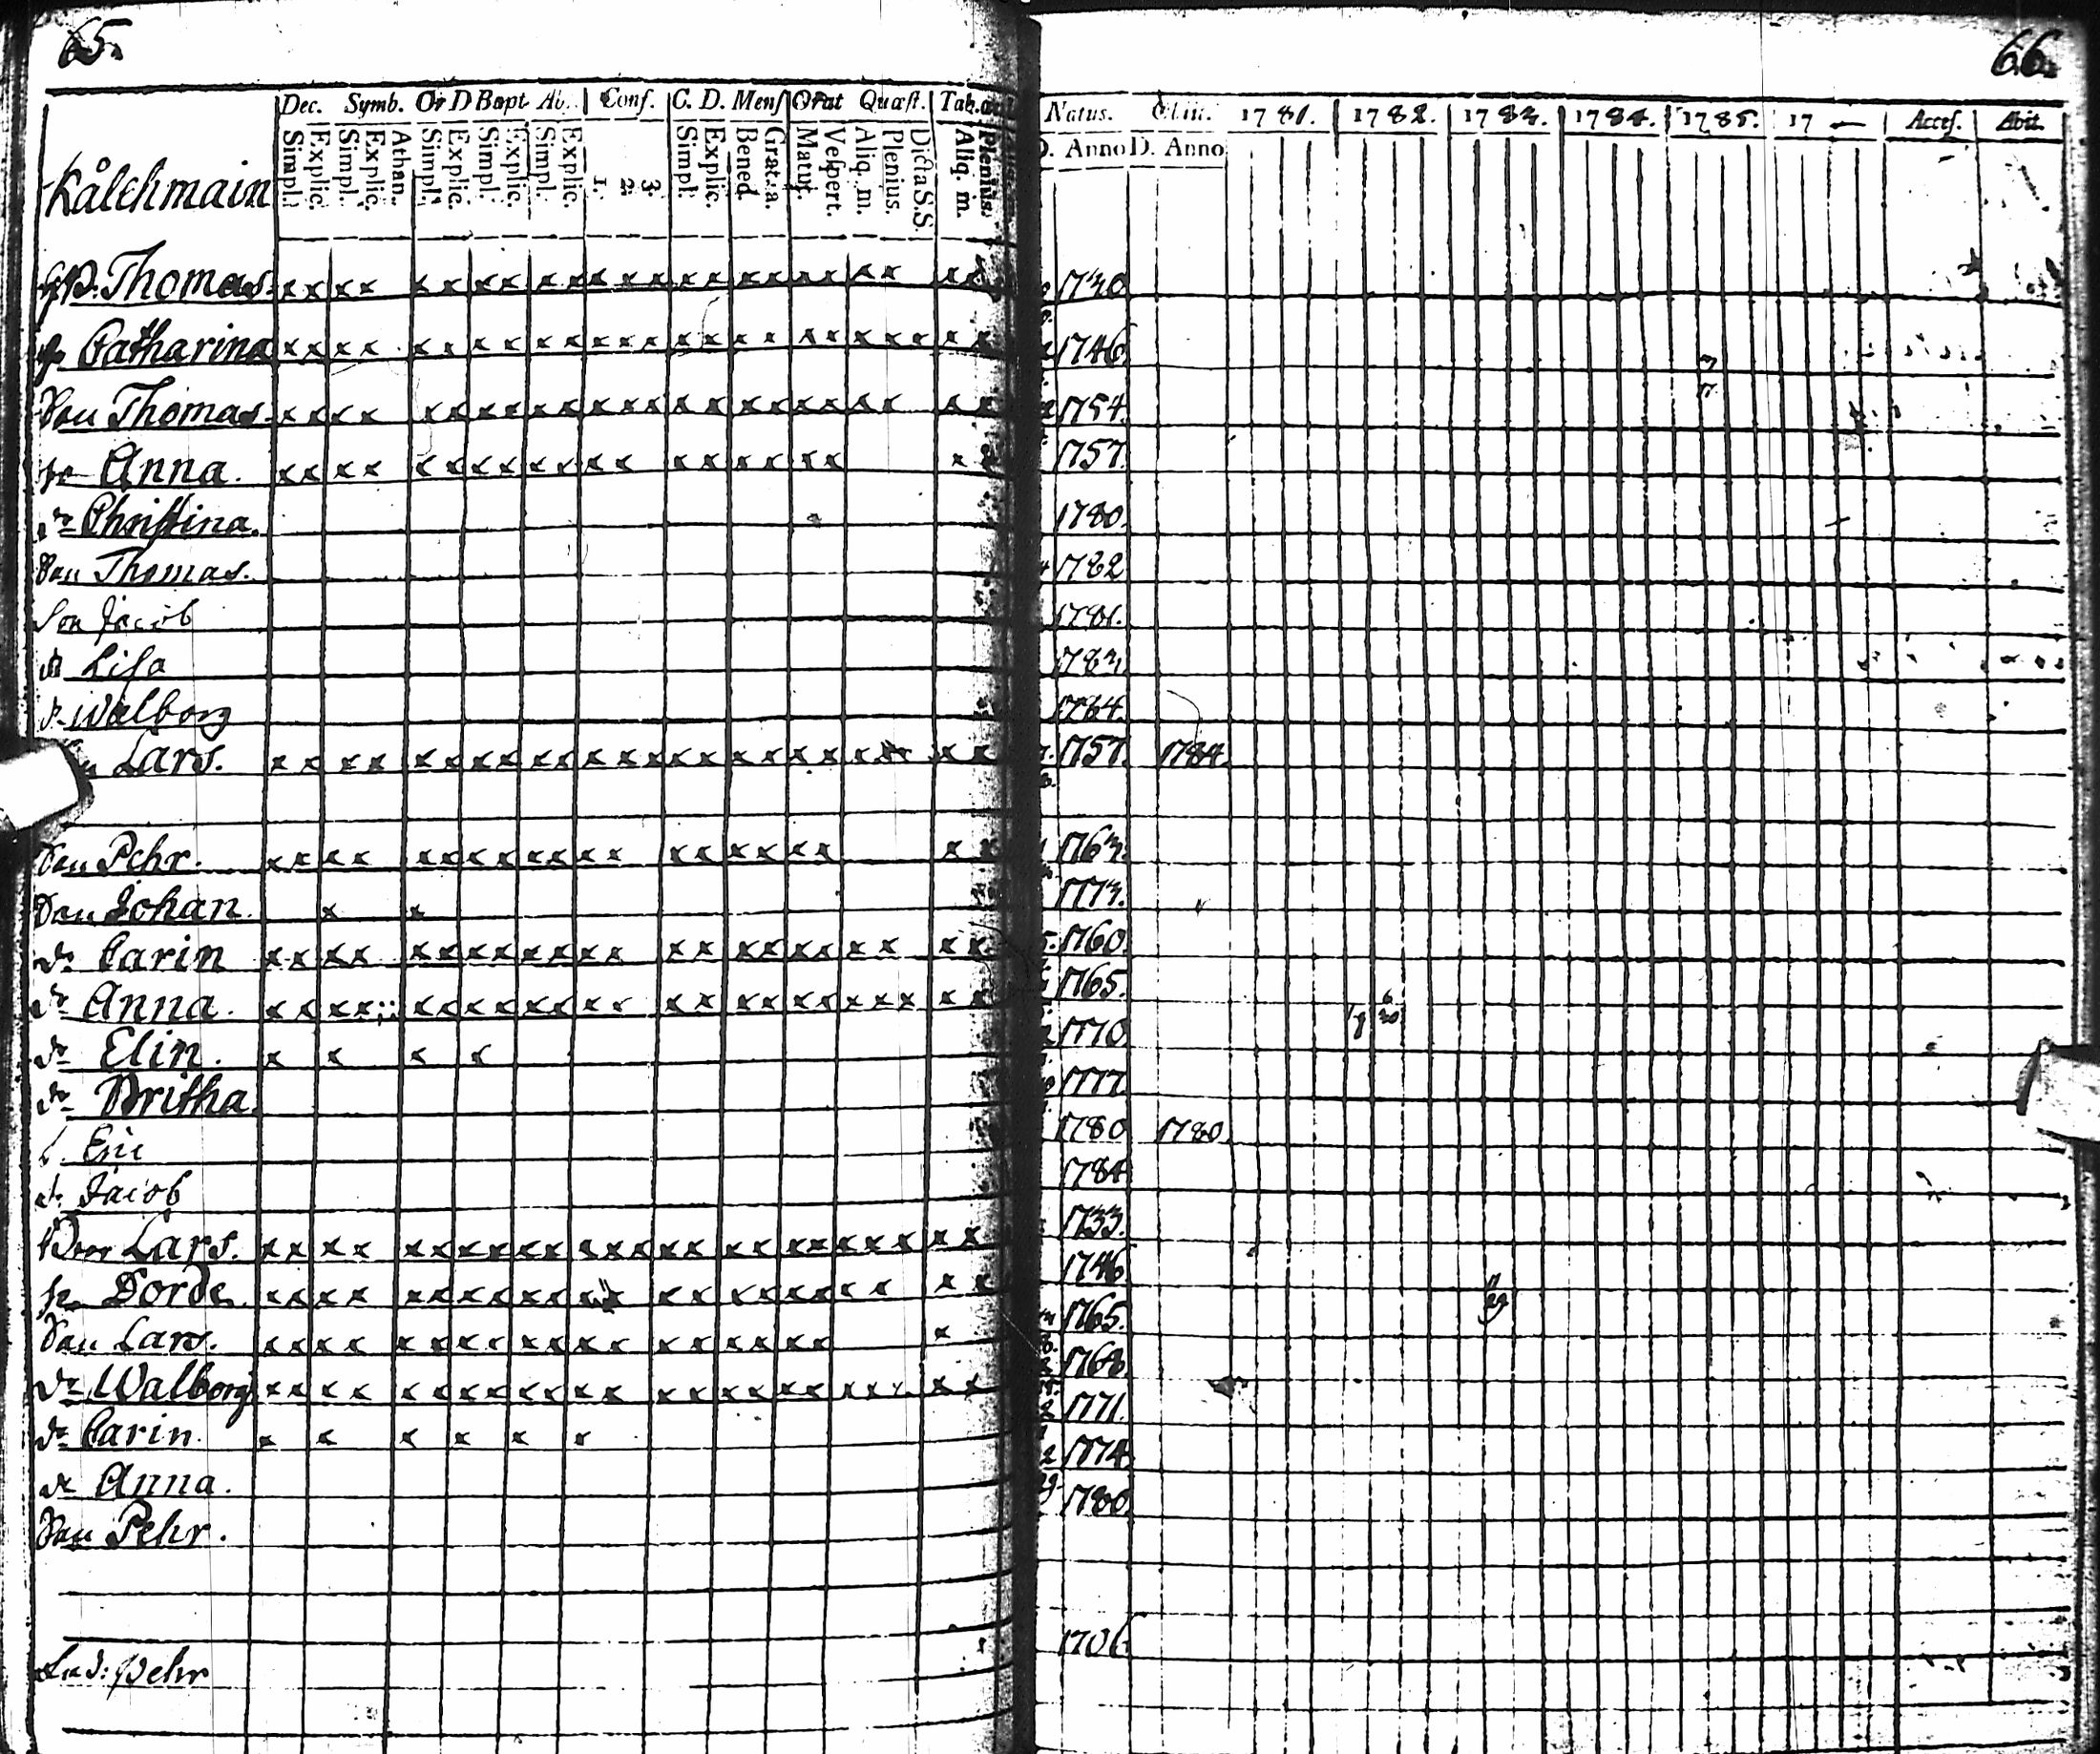 65.
66.
Dec. Symb. Or D Bapt Ab. Conf. C. D. Mens Orat Quæst. Tab.
Natus. Obiit. 1781. 1782. 1783. 1784. 1785. 17
Acces. Abit.
Simpl. Explic. Simpl. Explic. Athan. Simpl. Explic. Simpl. Explic. Simpl. Explic. 1. 2. 3. Simpl. Explic. Bened. Gratia. Matut. Vespert. Aliq. m. Plenius. Dicta S.S. Aliq. m. Plenius.
D. Anno D. Anno
Kålchmain
Thomas. x x x x x x x x x x x x x x x x x x x x x x x 1740
Catharina x x x x x x x x x x x x x x x x x x x x x x x x 1746.
Son Thomas. x x x x x x x x x x x x x x x x x x x x x x x 1754.
Anna. x x x x x x x x x x x x x x x x x x x x 1757.
dr Christina. 1780.
Son Thomas. 1782
Son Jacob 1781.
dr Lisa 1783.
dr Walborg 1784.
Lars. x x x x x x x x x x x x x x x x x x x x x 1757. 1784.
Son Pehr. x x x x x x x x x x x x x x x x x x x x 1763.
Son Johan. x x 1773.
dr Carin x x x x x x x x x x x x x x x x x x x x x x 1760.
dr Anna. x x x x x x x x x x x x x x x x x x x x x x x 1765.
dr Elin. x x x x 1770.
dr Britha. 1777.
s. Eric 1780 1780.
Jacob 1784
Bror Lars. x x x x x x x x x x x x x x x x x x x x x x x x 1733.
Dorde. x x x x x x x x x x x x x x x x x x x x x x 1746
Son Lars. x x x x x x x x x x x x x x x x x x x 1765.
dr Walborg x x x x x x x x x x x x x x x x x x x x x x x 1768.
dr Carin. x x x x x x 1771.
dr Anna. 1774.
Son Pehr. 1780.
Pehr 1706